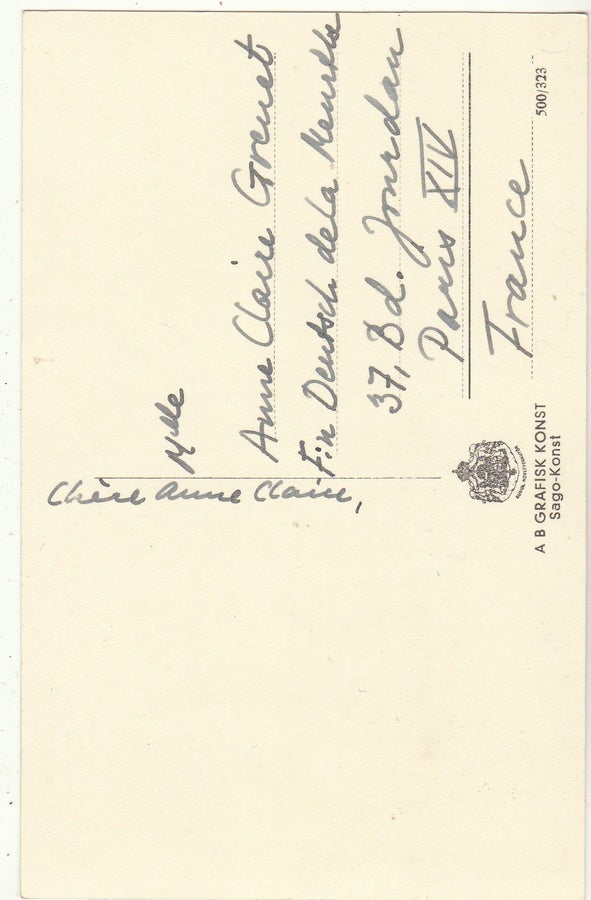 Chère Anne Claire,
Mlle
Anne Claire Grenet
F:n Deutsch de la Meurthe
37, Bd. Jourdan
Paris XIV
France
500/323
A B GRAFISK KONST
Sago-Konst